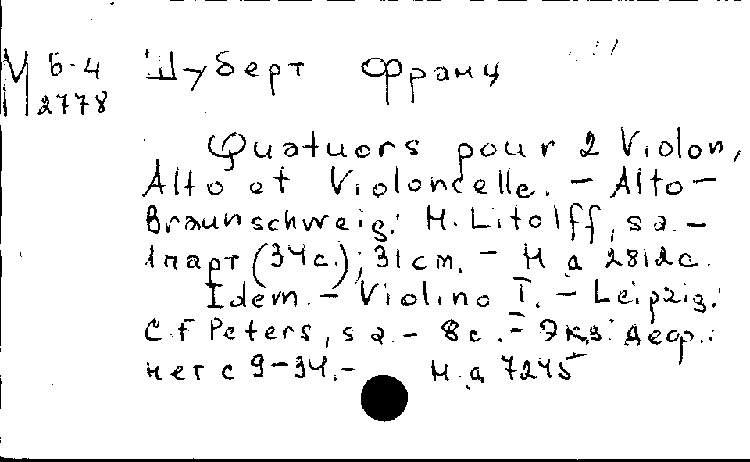 М Б-4 Шуберт Франц
2778
Quatuors pour 2 Violon,
Alto et Violoncelle. - Alto -
Braunschweig: H. Litolff, s a. -
1 парт (34с.); 31 см. - Н д 2812с.
Idem. - Violino I. - Leipzig:
C. F Peters, s a. - 8с. - Экз. деф.:
нет с 9-34. - Н. д 7245